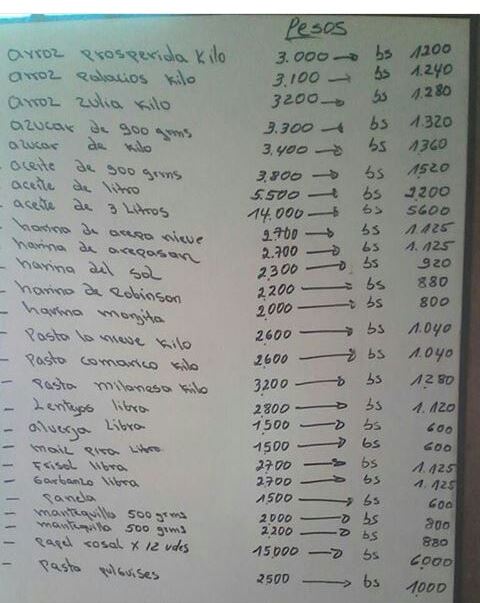 Pesos
arroz prosperida kilo 3.000 → bs 1200
arroz palacios kilo 3.100 → bs 1.240
arroz zulia kilo 3200 → bs 1.280
azucar de 900 grms 3.300 → bs 1.320
azucar de kilo 3,400 → bs 1360
aceite de 900 grms 3.800 → bs 1520
- aceite de litro 5.500 → bs 2.200
- aceite de 3 Litros 14.000 → bs 5600
- harina de arepa nieve 2.700 → bs 1.125
- harina de arepasan 2.700 → bs 1.125
- harina del sol 2,300 → bs 920
- harina de Robinson 2,200 → bs 880
- harina monjita 2,000 → bs 800
- Pasta la nieve kilo 2600 → bs 1.040
- Pasta comarico kilo 2,600 → bs 1.040
- Pasta milanesa kilo 3200 → bs 1.280
- Lentejas libra 2,800 → bs 1.120
- alverja Libra 1,500 → bs 600
- maiz pira Libra 1500 → bs 600
- Frisol libra 2700 → bs 1.125
- Garbanzo libra 2700 → bs 1.125
- Panela 1500 → bs 600
- mantequilla 500 grms 2,000 → bs 800
- mantequilla 500 grms 2,200 → bs 880
- Papel rosal x 12 udes 15,000 → bs 6000
- Pasta 2500 → bs 1,000